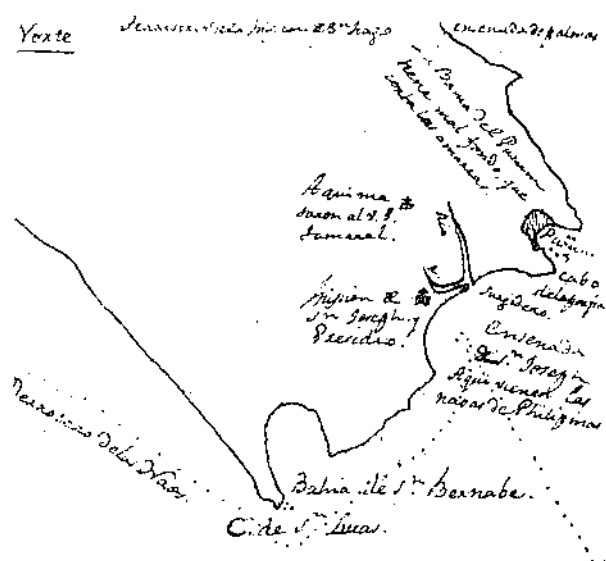 Norte
ensenada de palmas
Bahia del Purum
tiene mal fondo, que
corta las amarras.
Aqui ma
taron al V. P.
Tamaral.
Rio
Mision de
Sn Joseph. y
Presidio.
Purum
cabo
de la porfia
surgidero.
Ensenada
de Sn Joseph
Aqui vienen las
naos de Philipinas
Derrotero de las Naos.
Bahia de Sn Bernabe.
C. de Sn Lucas.